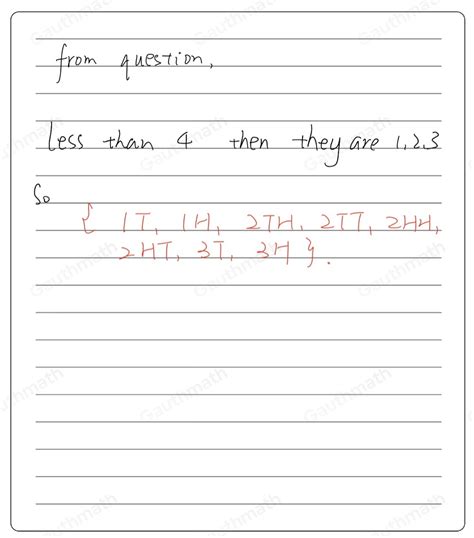 from question,
Less than 4 then they are 1,2,3
So
{ 1T, 1H, 2TH, 2TT, 2HH,
2HT, 3T, 3H }.